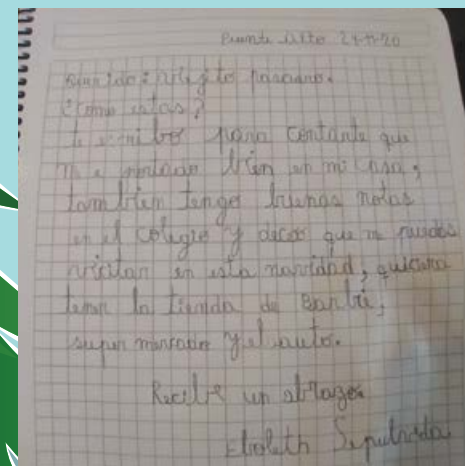 Puente Alto 24-11-20
Querido: viejito pascuero.
¿Como estas?
te escribo para contarte que
m e portado bien en mi casa,
tambien tengo buenas notas
en el colegio y deseo que me puedas
visitar en esta navidad, quisiera
tener la tienda de Barbie,
super mercado y el auto.
Recibe un abrazo.
Sepulveda